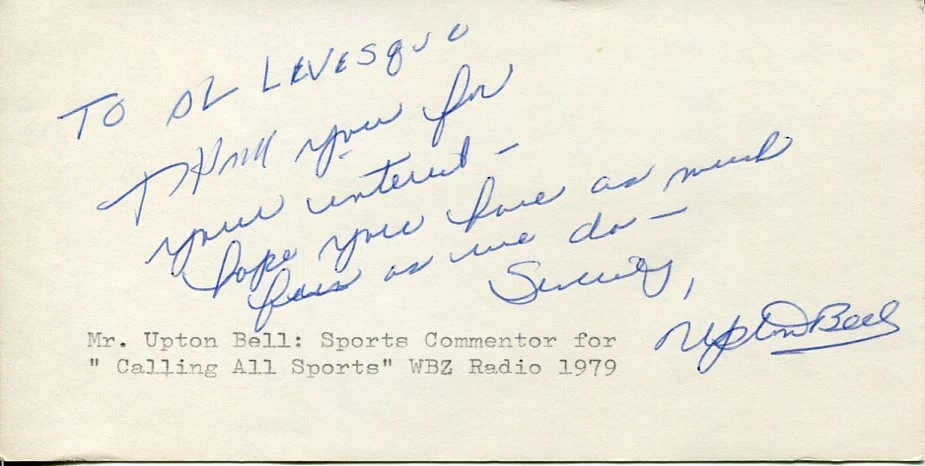 TO AL LEVESQUE
THANK you for
your interest -
hope you have as much
fun as we do -
Sincerely,
Upton Bell
Mr. Upton Bell: Sports Commentor for
" Calling All Sports" WBZ Radio 1979